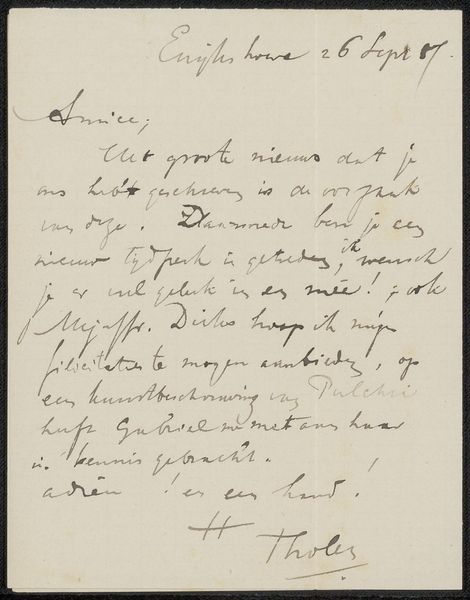 26 Sept 87.
Amice,
Het groote nieuws dat je
ons hebt geschreven is de oorzaak
van deze. Daarmede ben je een
nieuw tijdperk in getreden, ik wensch
je er veel geluk in en meê! ook
Mejuffr. Dirks hoop ik mijn
felicitaties te mogen aanbieden, op
een kunstbeschouwing van Pulchri
heeft Gabriel me met haar
in kennis gebracht.
adieu! en een hand!
Tholen